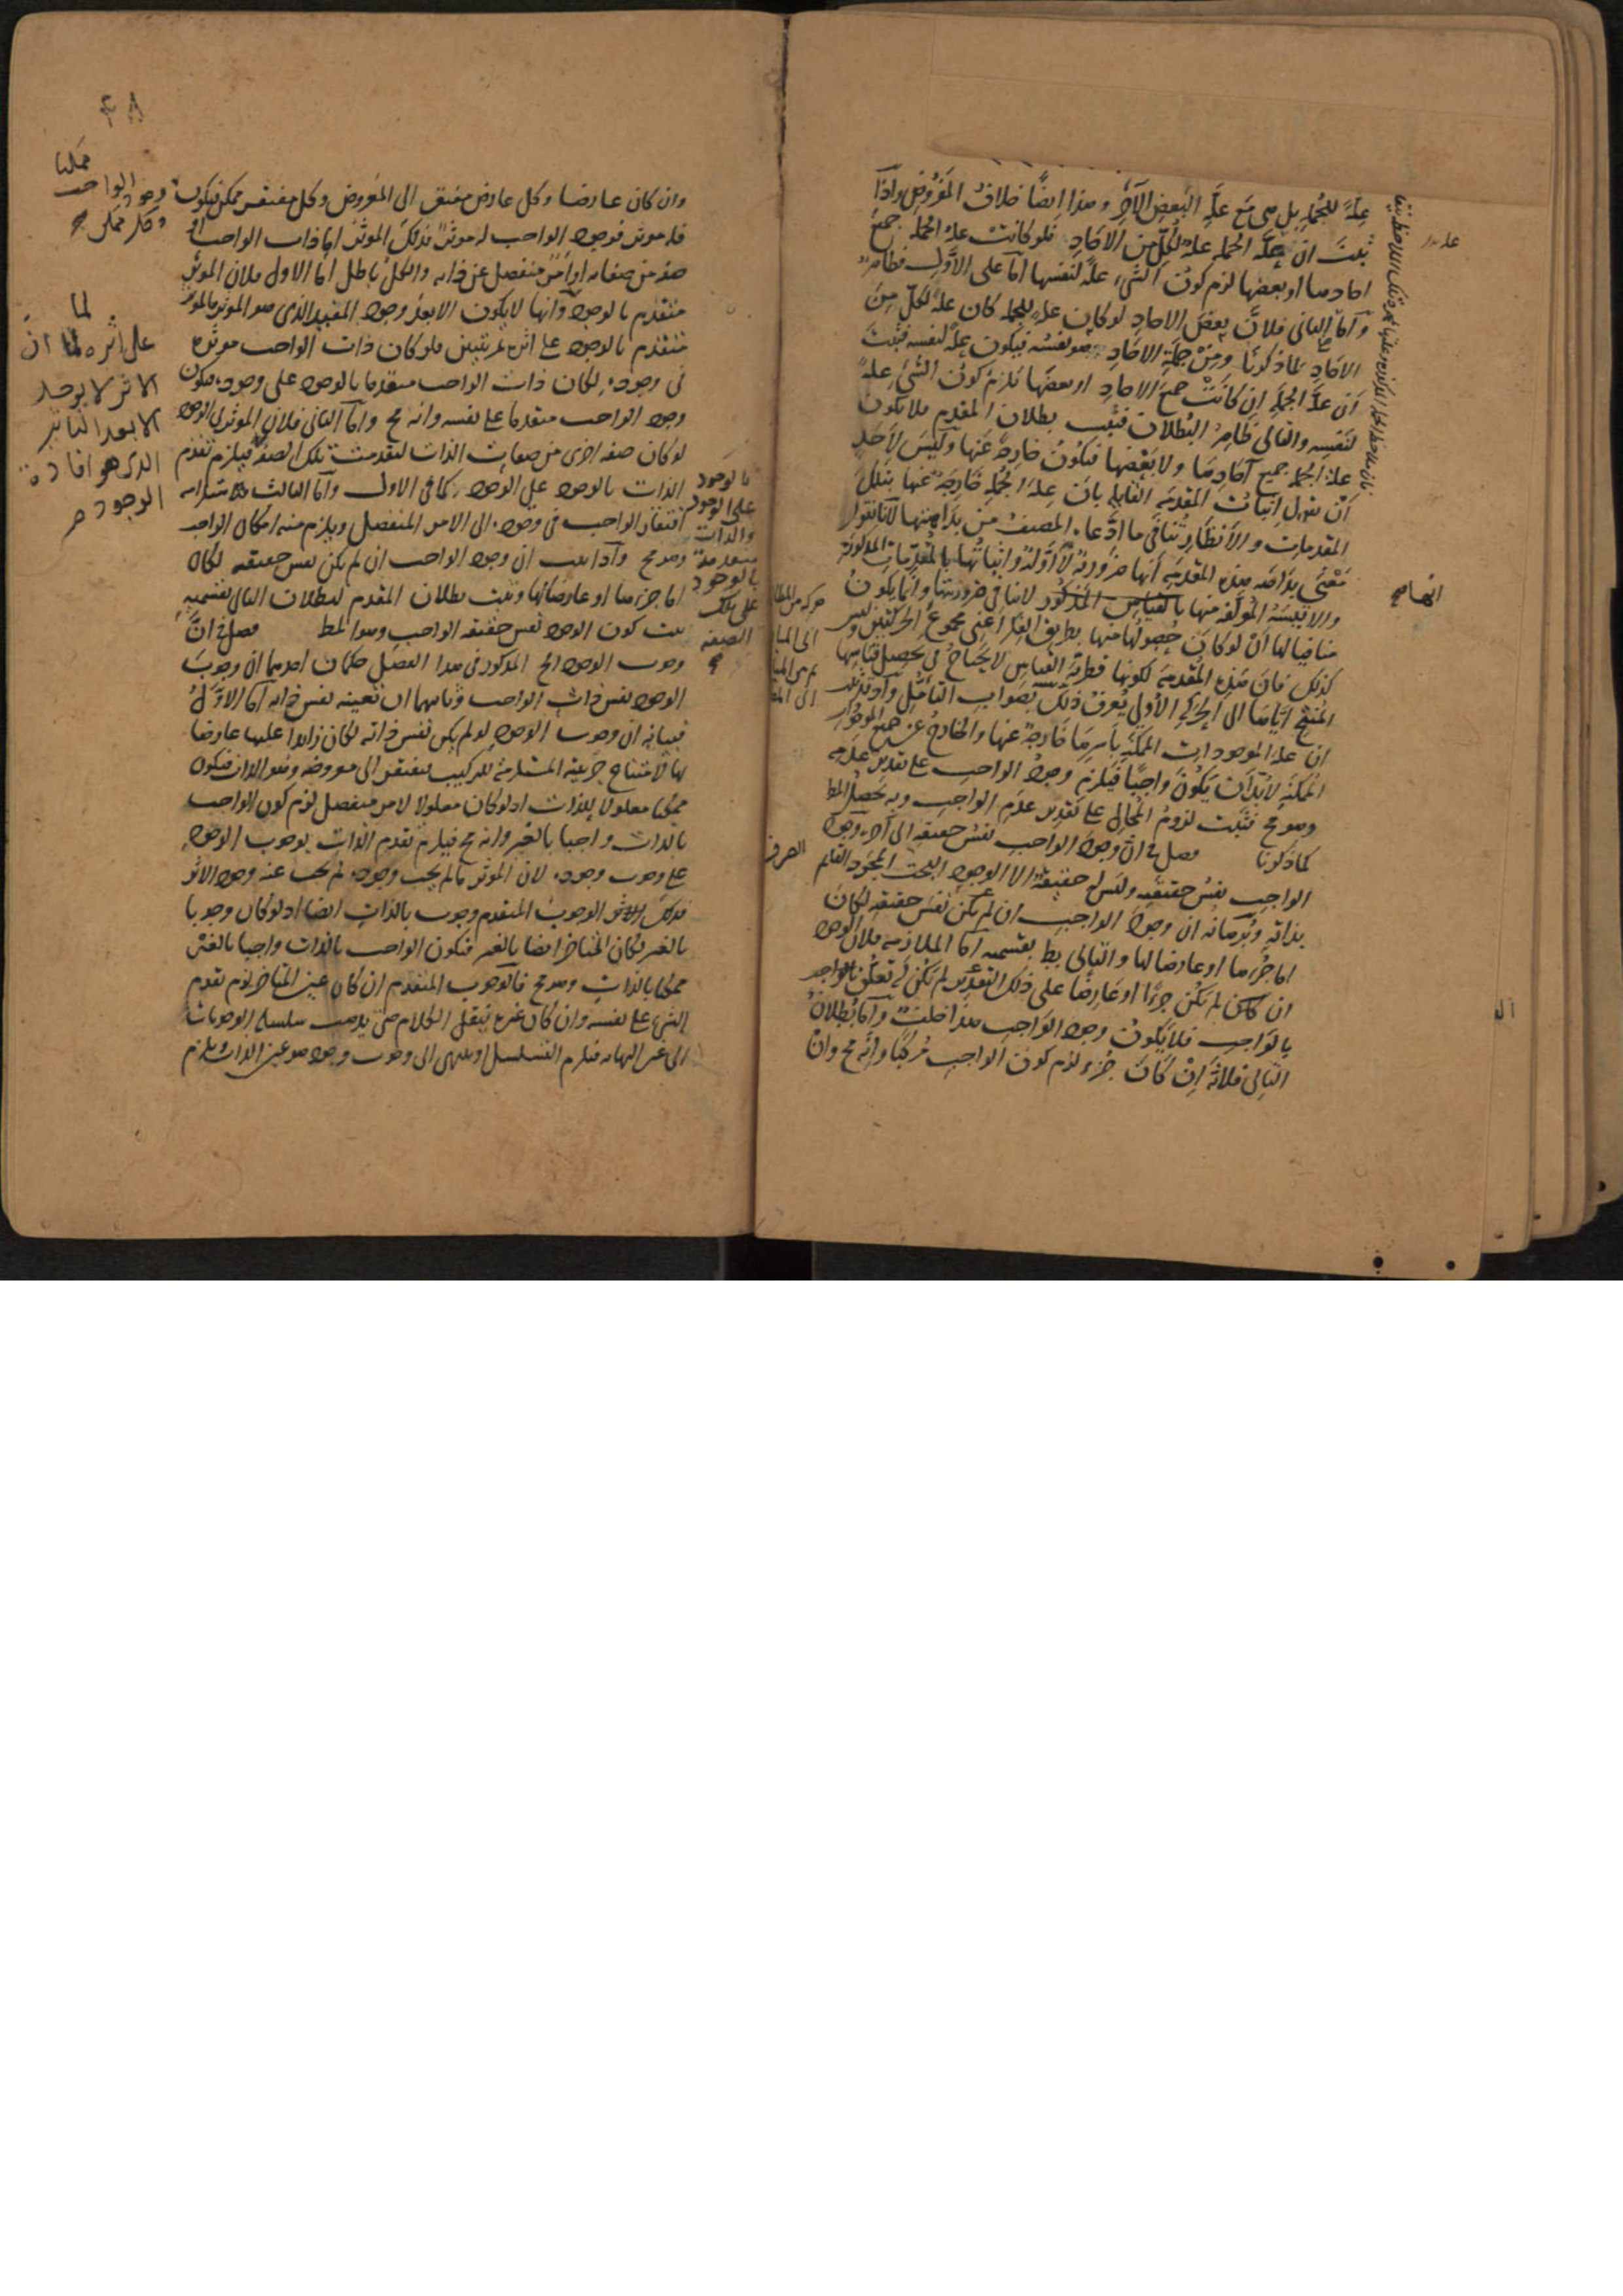 علةً للجملة بل هي مع علة البعض الآخر وهذا ايضًا خلاف المفروض واذا
ثبت ان علة الجملة علة لكل من الآحاد فلو كانت علة الجملة جميع
آحادها او بعضها لزم كون الشيء علة لنفسها اما على الاول فظاهر
واما الثاني فلان بعض الاحاد لو كان علة للجملة كان علة لكل من
الاحاد لما ذكرنا ومن جملة الاحاد هو نفسه فيكون علة لنفسه فثبت
ان علة الجملة ان كانت جميع الاحاد او بعضها يلزم كون الشيء علة
لنفسه والتالي ظاهر البطلان فثبت بطلان المقدم فلا يكون
علة الجملة جميع آحادها ولا بعضها فيكون خارجة عنها وليس لاحد
ان يقول اثبات المقدمة القايلة بان علة الجملة خارجة عنها بتلك
المقدمات والانظار تنافي ما ادعاه المصنف من بداهتها لانا نقول
معنى بداهة هذه المقدمة انها ضرورية لا اولية واثباتها بالمقدمات المذكورة
والاقيسة المؤلفة منها بالقياس المذكور لا ينافي ضرورتها وانما يكون
منافيا لها ان لو كان حصولها منها بطريق الفكر اعني مجموع الحركتين وليس
كذلك فان هذه المقدمة لكونها فطرية القياس لا يحتاج في تحصيل قياسها
المنتج اياها الى الحركة الاولى يعرف ذلك بصواب التأمل واذ قد ثبت
ان علة الموجودات الممكنة بأسرها خارجة عنها والخارج عن جميع الموجودات
الممكنة لا بد ان يكون واجبًا فيلزم وجود الواجب على تقدير عدمه
وهو مح فثبت لزوم المحال على تقدير عدم الواجب وبه يحصل المط
كما ذكرنا فصل في ان وجود الواجب نفس حقيقته الى آخره وجود
الواجب نفس حقيقته وليس له حقيقة الا الوجود البحت المجرد القايم
بذاته وبرهانه ان وجود الواجب ان لم يكن نفس حقيقته لكان
اما جزءها او عارضا لها والتالي بط بقسميه اما الملازمة فلان الوجود
ان كان لم يكن جزءًا او عارضًا على ذلك التقدير لم يكن له تعلق بالواجب
بالواجب فلا يكون وجود الواجب هذا خلف واما بطلان
التالي فلانه ان كان جزءً لزم كون الواجب مركبًا وانه مح وان
الصرف
وان كان عارضا وكل عارض مفتقر الى المعروض وكل مفتقر ممكن فيكون
فله موثر فوجود الواجب له موثر فذلك الموثر اما ذات الواجب او
صفة من صفاته او امر منفصل عن ذاته والكل باطل اما الاول فلان الموثر
متقدم بالوجود وانها لا يكون الا بعد وجود المفيد الذي هو الموثر فالموثر
متقدم بالوجود على اثره ثم يتبين فلو كان ذات الواجب موثرة
في وجوده لكان ذات الواجب متقدما بالوجود على وجوده فيكون
وجود الواجب متقدما على نفسه وانه مح واما الثاني فلان الموثر في الوجود
لو كان صفة اخرى من صفات الذات لتقدمت تلك الصفة فيلزم تقدم
الذات بالوجود على الوجود كما في الاول واما الثالث فلاستلزامه
افتقار الواجب في وجوده الى الامر المنفصل ويلزم منه امكان الواجب
وهو مح واذا ثبت ان وجود الواجب ان لم يكن نفس حقيقته لكان
اما جزءها او عارضا لها وثبت بطلان المقدم لبطلان التالي بقسميه
ثبت كون الوجود نفس حقيقة الواجب وهو المط فصل في ان
وجوب الوجود الخ المذكور في هذا الفصل حكمان احدهما ان وجوب
الوجود نفس ذات الواجب وثانيهما ان تعينه نفس ذاته اما الاول
فبيانه ان وجوب الوجود لو لم يكن نفس ذاته لكان زايدا عليها عارضا
لها لامتناع جزئيته المستلزمة للتركيب فيفتقر الى معروضه وهو الذات فيكون
ممكنا معلولا للذات اذ لو كان معلولا لامر منفصل لزم كون الواجب
بالذات واجبا بالغير وانه مح فيلزم تقدم الذات بوجوب الوجود
على وجوب وجوده لان الموثر ما لم يجب وجوده لم يجب عنه وجود الاثر
فذلك الوجوب المتقدم وجوب بالذات ايضا اذ لو كان وجوبا
بالغير لكان المتاخر ايضا بالغير فيكون الواجب بالذات واجبا بالغير
ممكنا بالذات وهو مح فالوجوب المتقدم ان كان عين المتاخر لزم تقدم
الشيء على نفسه وان كان غيره ننقل الكلام حتى يذهب سلسلة الوجوبات
الى غير النهاية فيلزم التسلسل او ينتهي الى وجوب وجود هو عين الذات ويلزم
٤٨
ممكنا
وجود الواجب
وكل ممكن
لما
على اثره لما ان
الاثر لا يوجد
الا بعد التاثير
الذي هو افادة
الوجود
بالوجود
على الوجود
والذات
متقدمة
بالوجود
على تلك
الصفة